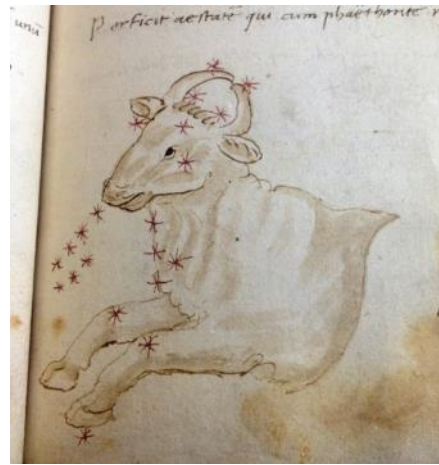 unā
P erficit aestatē qui cum phaethonte